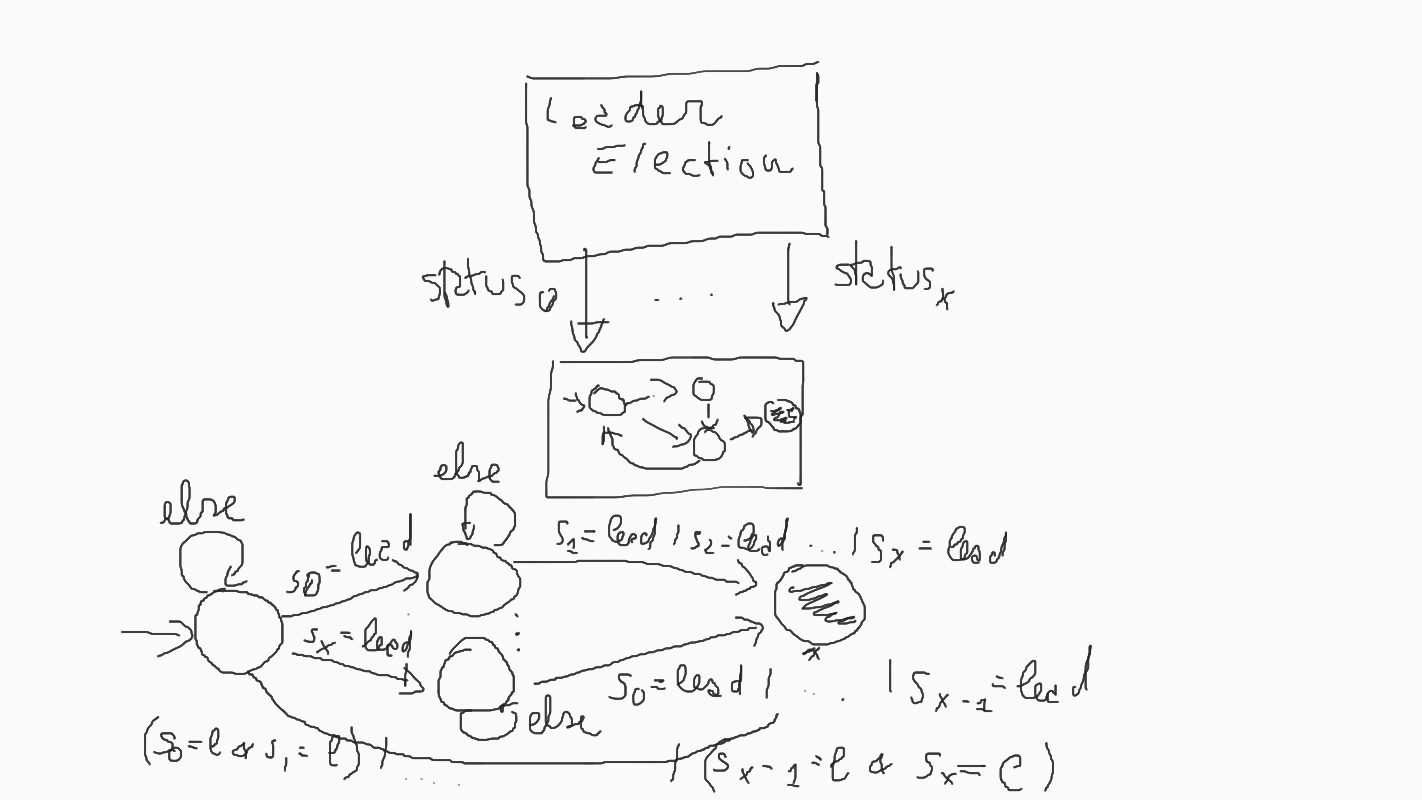 Leader
Election
status0
. . .
statusx
else
else
s0 = lead
s1 = lead | s2 = lead ... | sx = lead
sx = lead
s0 = lead | ... | sx-1 = lead
else
(s0 = l & s1 = l) | .... | (sx-1 = l & sx = l)